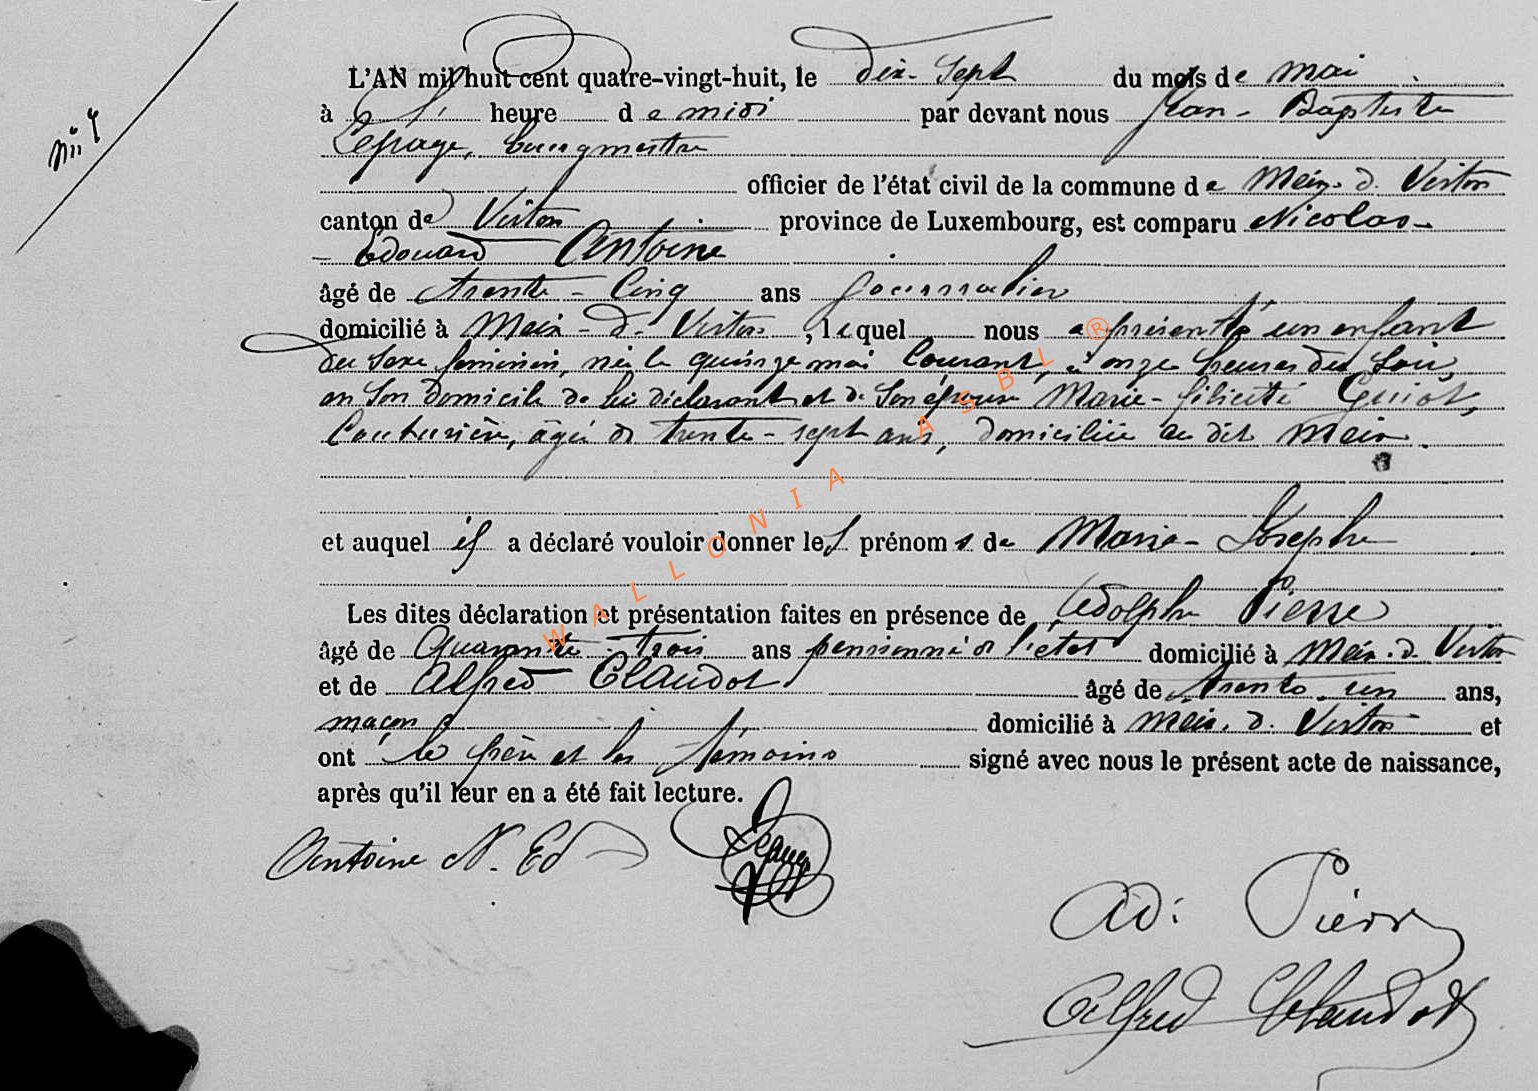 L'AN mil huit cent quatre-vingt-huit, le dix-sept du mois de mai
à heure de midi par devant nous Jean-Baptiste
Lepage, bourgmestre
officier de l'état civil de la commune de Meix-d. Virton
canton de Virton province de Luxembourg, est comparu Nicolas-
- Edouard Antoine
âgé de trente-cinq ans journalier
domicilié à Meix-d. Virton, lequel nous a présenté un enfant
du sexe féminin, née le quinze mai courant, à onze heures du soir,
en son domicile de lui déclarant et de son épouse Marie-Félicité Guiot,
Couturière, âgée de trente-sept ans, domiciliée au dit Meix.
et auquel il a déclaré vouloir donner les prénoms de Marie-Josèphe
Les dites déclaration et présentation faites en présence de Adolphe Pierre
âgé de quarante-trois ans pensionné de l'état domicilié à Meix-d. Virton
et de Alfred Claudot âgé de trente-un ans,
maçon domicilié à Meix-d. Virton et
ont le père et les témoins signé avec nous le présent acte de naissance,
après qu'il leur en a été fait lecture.
Antoine N. Ed
Ad: Pierre
Alfred Claudot
WALLONIA ASBL ®